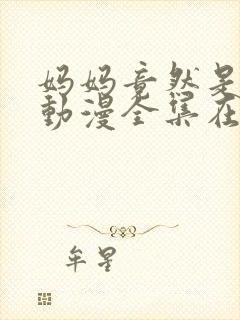 妈妈竟然是
動漫全集在
牟星